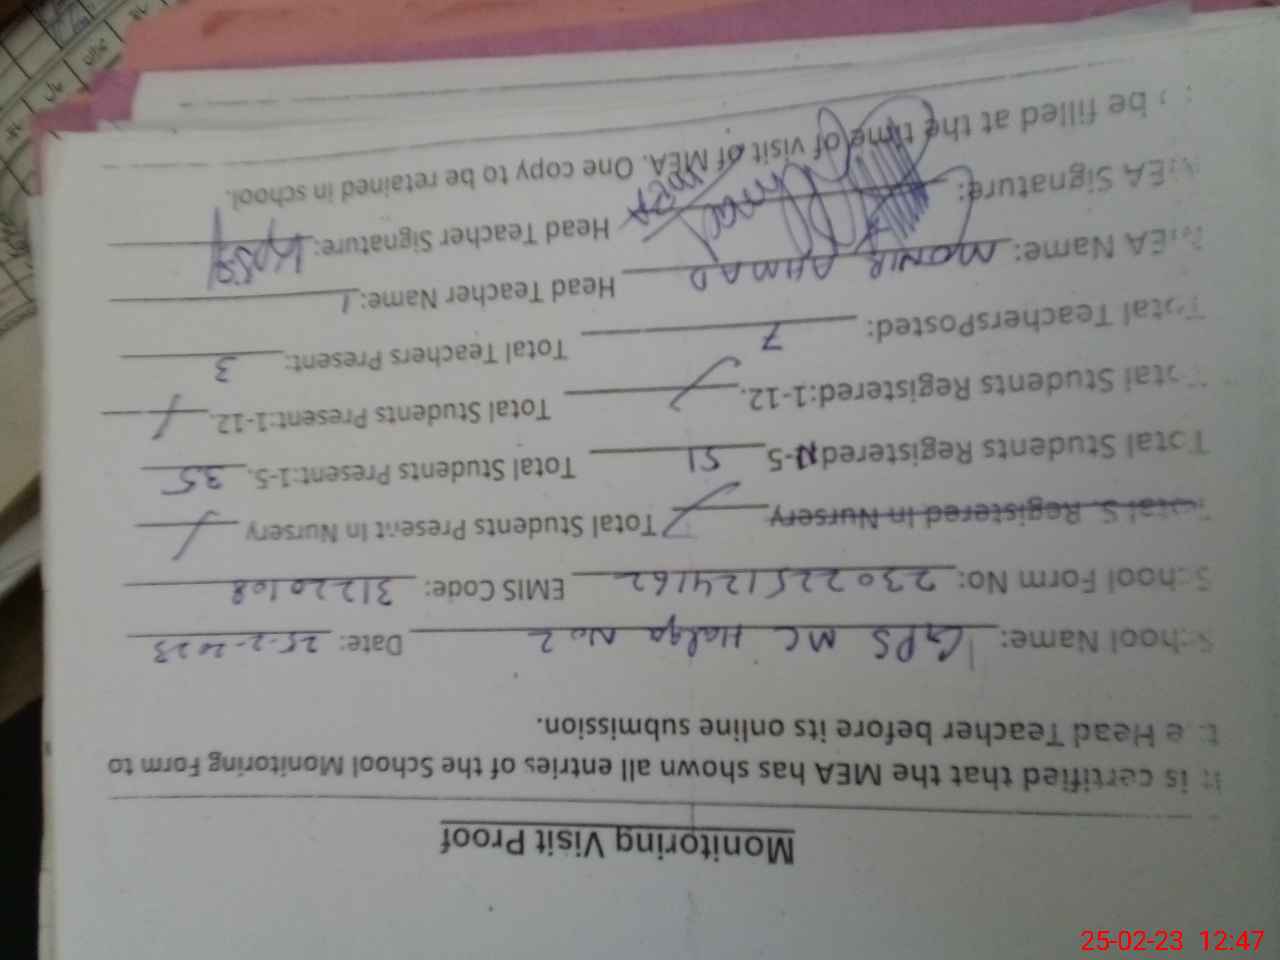 Monitoring Visit Proof
It is certified that the MEA has shown all entries of the School Monitoring Form to
the Head Teacher before its online submission.
School Name: GPS MC Halqa No 2 Date: 25-2-2023
School Form No: 230225124162 EMIS Code: 31220108
Total S. Registered In Nursery Total Students Present In Nursery
Total Students Registered N-5 51 Total Students Present:1-5. 35
Total Students Registered:1-12. Total Students Present:1-12.
Total TeachersPosted: 7 Total Teachers Present: 3
MEA Name: MONIR AHMAD Head Teacher Name:
MEA Signature: Head Teacher Signature:
be filled at the time of visit of MEA. One copy to be retained in school.
25-02-23 12:47